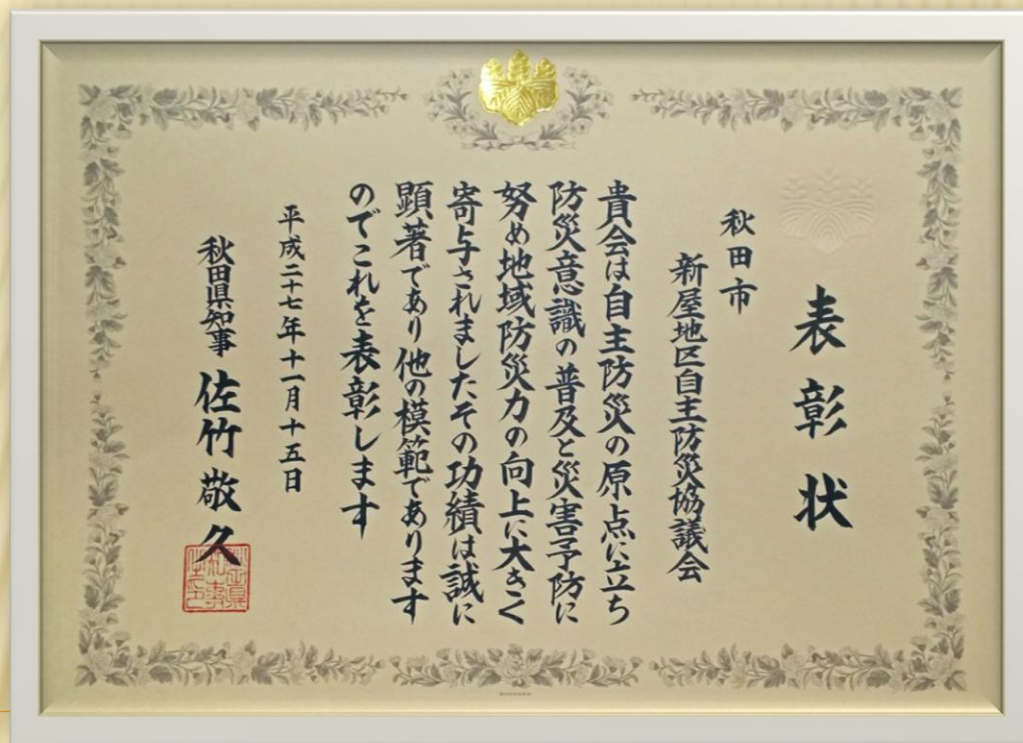 表彰状
秋田市
新屋地区自主防災協議会
貴会は自主防災の原点に立ち
防災意識の普及と災害予防に
努め地域防災力の向上に大きく
寄与されましたその功績は誠に
顕著であり他の模範であります
のでこれを表彰します
平成二十七年十一月十五日
秋田県知事 佐竹敬久